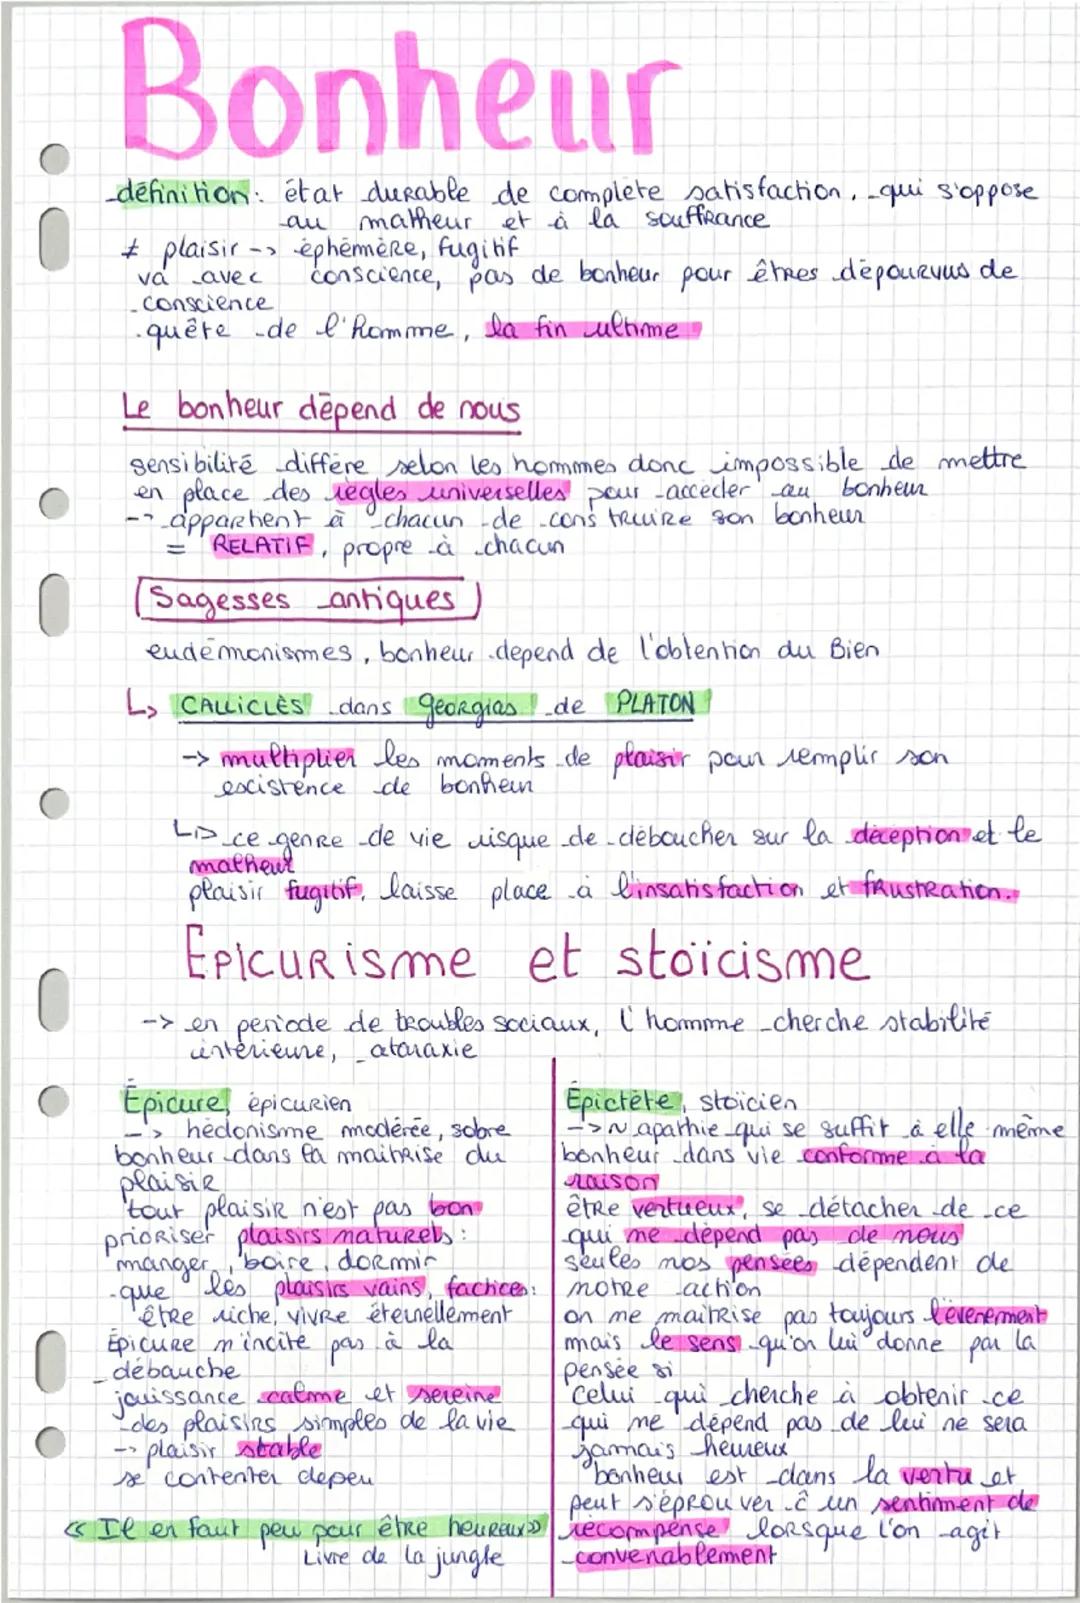 Bonheur
définition: état durable de complète satisfaction, qui s'oppose
au malheur et à la souffrance
≠ plaisir -> éphémère, fugitif
va avec conscience, pas de bonheur pour êtres dépourvus de
conscience
quête de l'homme, la fin ultime
Le bonheur dépend de nous
sensibilité diffère selon les hommes donc impossible de mettre
en place des règles universelles pour accéder au bonheur
-> appartient à chacun de construire son bonheur
= RELATIF, propre à chacun
Sagesses antiques
eudémonismes, bonheur depend de l'obtention du Bien
↳ CALLICLÈS dans Georgias de PLATON
-> multiplier les moments de plaisir pour remplir son
existence de bonheur
↳ ce genre de vie risque de déboucher sur la déception et le
malheur
plaisir fugitif, laisse place à l'insatisfaction et frustration.
Épicurisme et stoïcisme
-> en période de troubles sociaux, l'homme cherche stabilité
intérieure, ataraxie
Épicure, épicurien
-> hédonisme modérée, sobre
bonheur dans la maitrise du
plaisir
tout plaisir n'est pas bon
prioriser plaisirs naturels:
manger, boire, dormir
que les plaisirs vains, factices:
être riche, vivre éternellement
Épicure n'incite pas à la
débauche
jouissance calme et sereine
des plaisirs simples de la vie
-> plaisir stable
se contenter de peu
« Il en faut peu pour être heureux »
Livre de la jungle
Épictète, stoïcien
-> ~ apathie qui se suffit à elle même
bonheur dans vie conforme à la
raison
être vertueux, se détacher de ce
qui ne dépend pas de nous
seules nos pensées dépendent de
notre action
on ne maitrise pas toujours l'évenement
mais le sens qu'on lui donne par la
pensée si
Celui qui cherche à obtenir ce
qui ne dépend pas de lui ne sera
jamais heureux
bonheur est dans la vertu et
peut s'éprouver ĉ un sentiment de
récompense lorsque l'on agit
convenablement